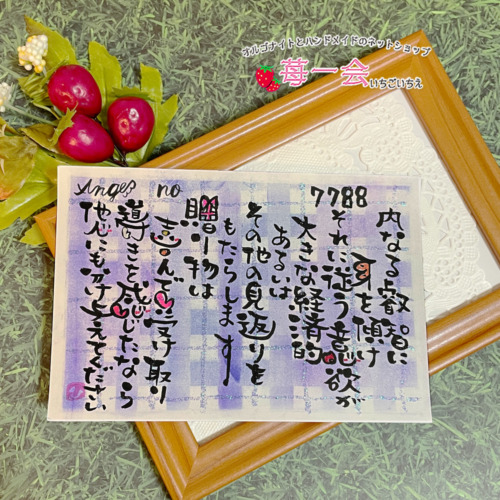 オルゴナイトとハンドメイドのネットショップ
苺一会
いちごいちえ
Angel no
7788
内なる叡智に
耳を傾け
それに従う意欲が
大きな経済的
あるいは
その他の見返りを
もたらします
贈り物は
喜んで受け取り
導きを感じたなら
他にも分け与えてください